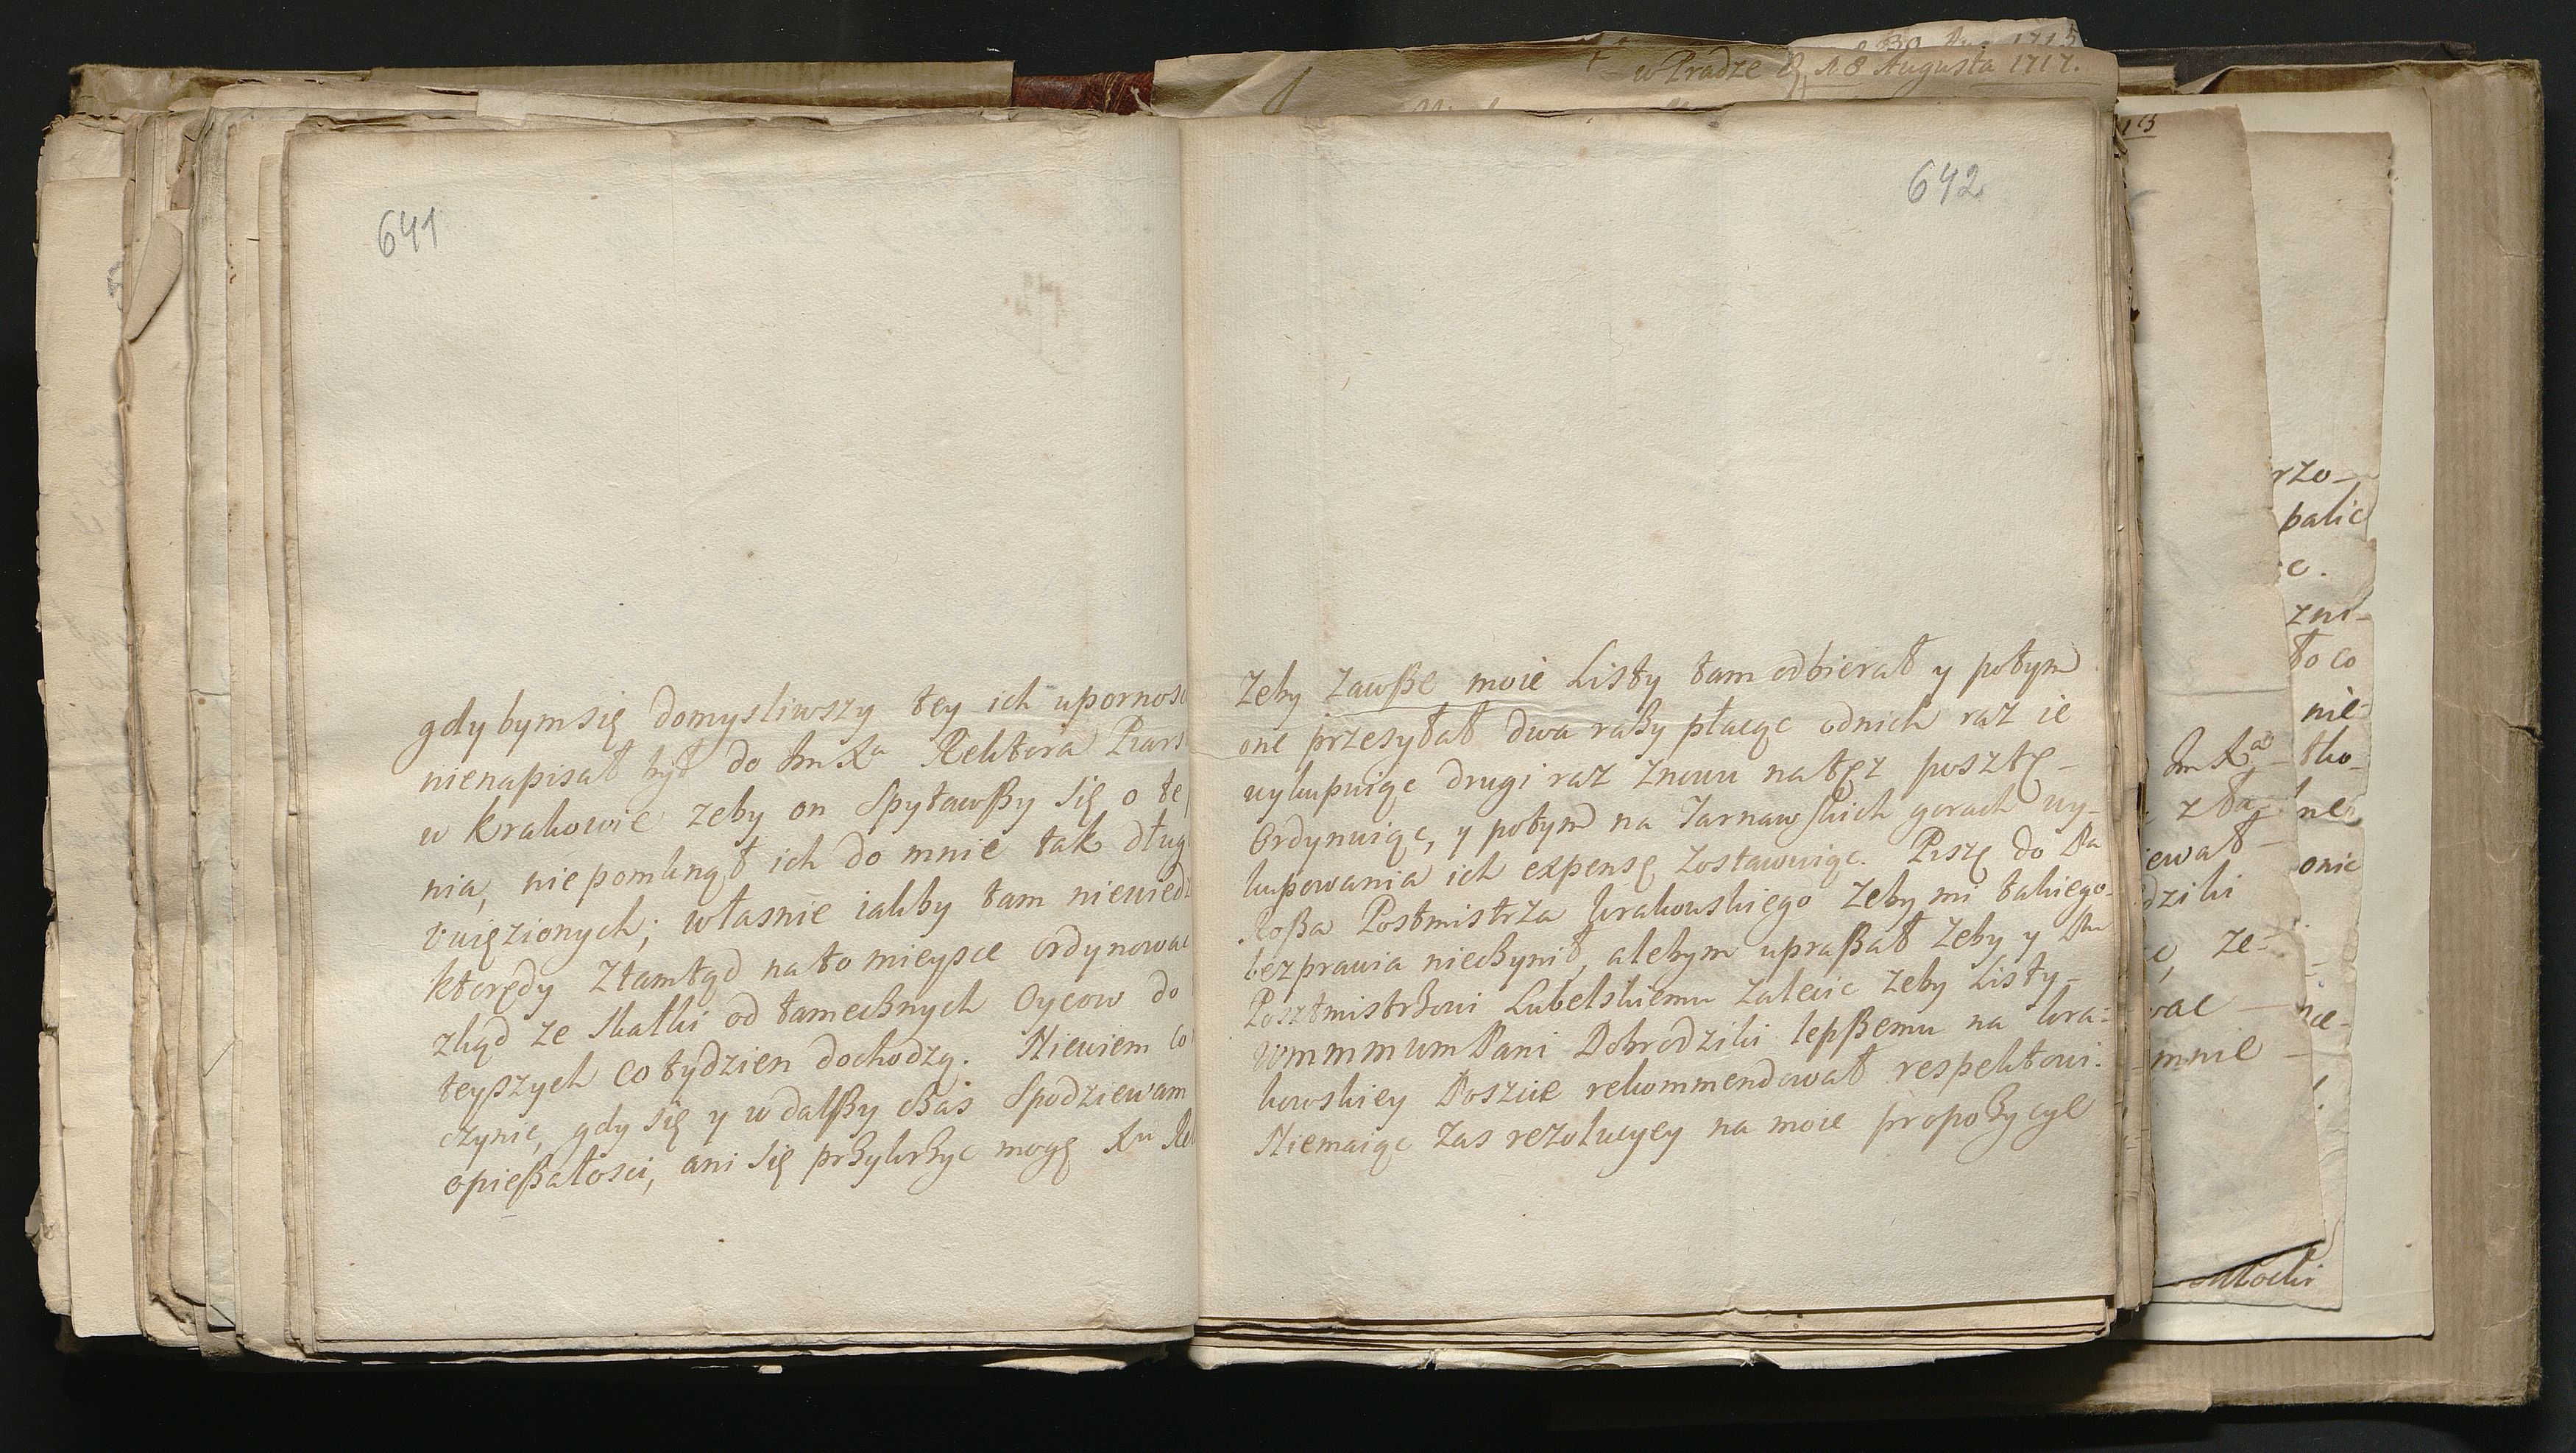 w Pradze D 18 Augusta 1717.
641
gdy bym się domysliwszy tey ich upornosc
nienapisał był do Jm Xa Rektora Piars
w Krakowie zeby on Spytawßy Się o te
nia, nie pomknął ich do mnie tak dług
Uwięzionych; własnie iakby tam niewiedz
ktorędy Ztamtąd na to mieysce ordynowac
zkąd ze Skałki od tamecznych Oycow do
teyszych co tydzien dochodzą. Niewiem co
czynic, gdy Się y w dalßy czas Spodziewam
opießałosci, ani Się przykrzyc mogę Xu Rek
642
Zeby Zawße moie Listy tam odbierał y potym
one przesyłał dwa razy płacąc od nich raz ie
wykupuiąc drugi raz Znowu na tęz posztę
Ordynuiąc, y potym na Tarnawskich gorach wy-
kupowania ich expensę Zostawuiąc. Piszę do Pa
Roßa Postmistrza krakowskiego Zeby mi takiego
bezprawia nieczynił, alebym upraßał Zeby y Pu
Posztmistrzowi Lubelskiemu Zalecic zeby Listy
Wmmmum Pani Dobrodziki lepßemu na kra-
kowskiey Poszcie rekommendował respektowi.
Niemaiąc Zas rezolucyey na moie propozycye
rzo-
palic
c.
zni-
to co
nie-
tko-
ne
onic
Jm Xa
z ta
iewał
dziki
ze-
wac
mnie